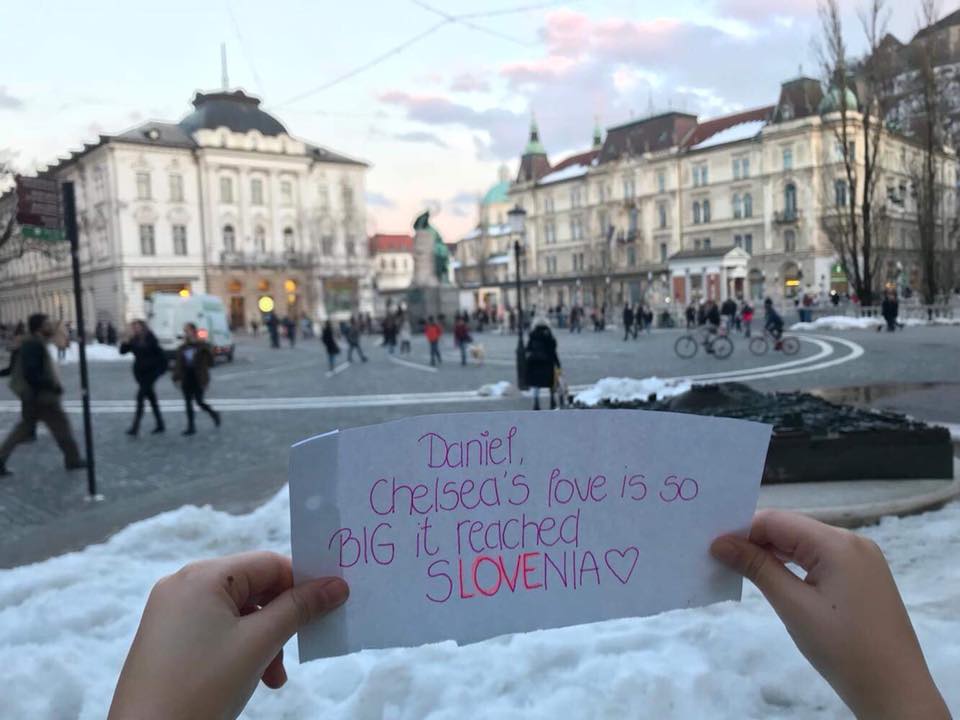 Daniel,
Chelsea's love is so
BIG it reached
SLOVENIA♡